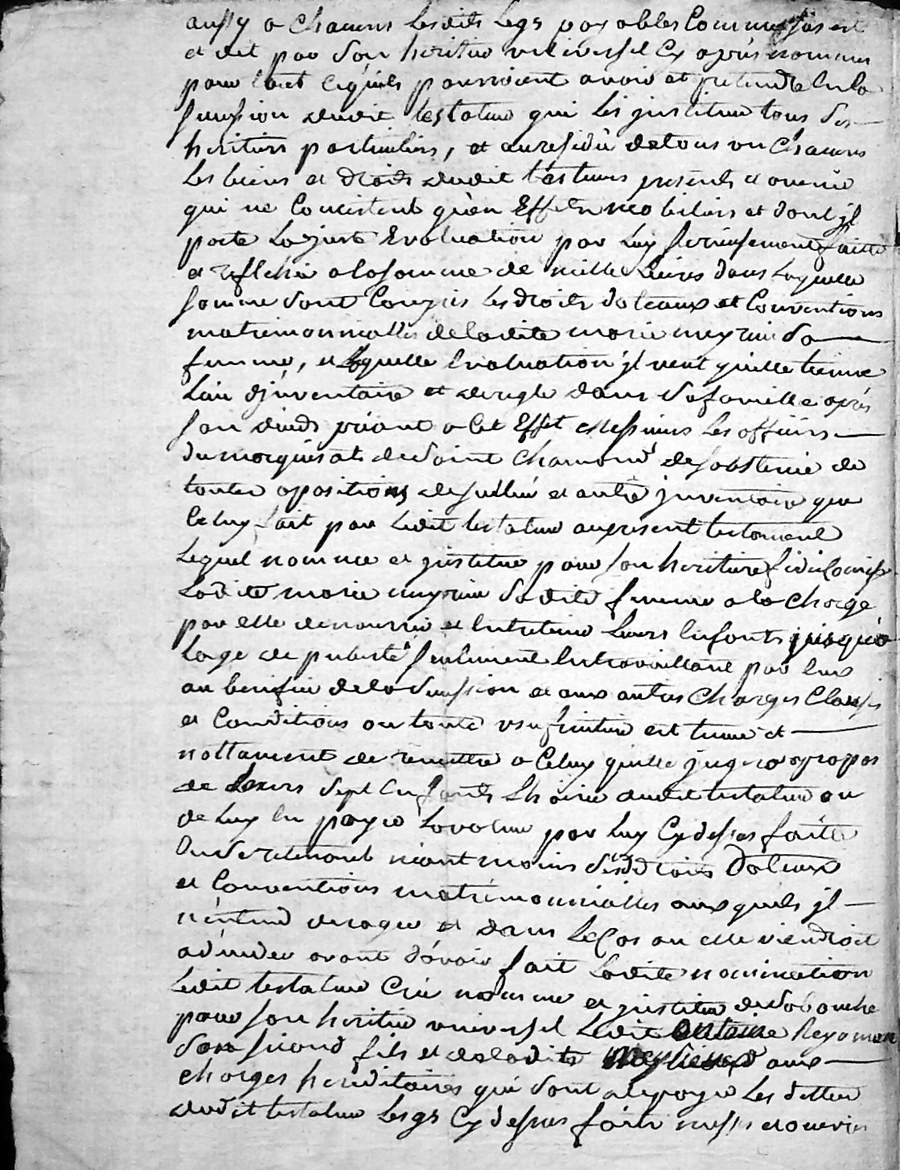 aussy a chacuns lesdits legs payables comme jls est
et dit par son heritier universel cy apres nommé
pour tout ce qu'ils pourroient avoir et pretendre en la
sucession dudit testateur qui les jnstitue tous ses
heritiers particuliers, et au residu de tous un chacuns
les biens et droits dudit testateur presents et avenir
qui ne consistent qu'en Effets mobiliers et dont jl
porte la juste Evaluation par luy serieusement faitte
et reflechie a la somme de mille livres dans laquelle
somme sont compris les droits doteaux et conventions
matrimonnialles de ladite marie meyrieu sa
femme, et laquelle Evaluation jl veut qu'elle tienne
lieu d'jnventaire et de regle dans sa famille apres
son deceds priant a cet Effet Messieurs les officiers
du marquisat de Saint Chamond de sabstenir de
toutes opositions de scellés et autre jnventaire que
celuy fait par ledit testateur au present testament
lequel nomme et jnstitue pour son heritiere fideicomise
ladite marie meyrieu sadite femme a la charge
par elle de nourrir et entretenir leurs enfants jusqu'a
lage de puberté seulement en travaillant par eux
au benefice de la sucession et aux autres charges clauses
et conditions ou toute usufruitiere est tenue et
nottament de remettre a celuy quelle jugera apropos
de leurs sept enfants l'hoirie dudit testateur ou
de luy en payer la valeur par luy cy dessus faitte
sous deniemoins ses droits dotaux
et conventions matrimonnialles auxquels jl
n'entend deroger et dans le cas ou elle viendroit
a deceder avant d'avoir fait ladite nomination
ledit testateur crée nomme et jnstitue de sa bouche
pour son heritier universel ledit antoine Reyomon
son second fils et de ladite aux
charges hereditaires qui sont de payer les dettes
dudit testateur legs cy dessus faits messes et oeuvres